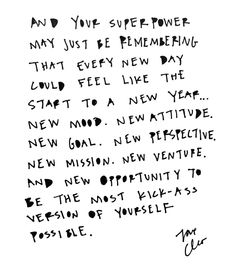 AND YOUR SUPERPOWER
MAY JUST BE REMEMBERING
THAT EVERY NEW DAY
COULD FEEL LIKE THE
START TO A NEW YEAR...
NEW MOOD. NEW ATTITUDE.
NEW GOAL. NEW PERSPECTIVE.
NEW MISSION. NEW VENTURE.
AND NEW OPPORTUNITY TO
BE THE MOST KICK-ASS
VERSION OF YOURSELF
POSSIBLE.